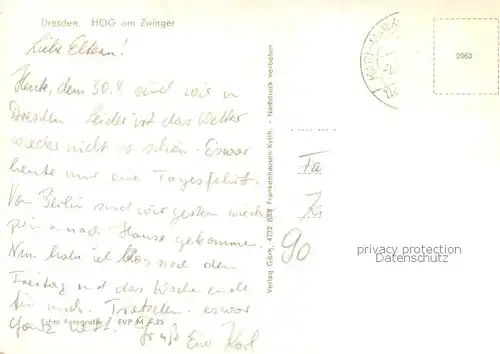 Dresden. HOG am Zwinger
Liebe Eltern!
Heute, dem 30.V. sind wir in
Dresden. Leider ist das Wetter
wieder nicht so schön. Es war
heute nur eine Tagesfahrt.
Von Berlin sind wir gestern
nach Hause gekommen.
Nun habe ich bloß noch den
Freitag und das Wochenende
für mich. Trotzdem es war
ganz nett. Gruß Euer Karl
Echte Fotografie EVP M 0.25
Verlag Görn, 4732 Bad Frankenhausen-Kyffh. - Nachdruck verboten
KARL-MARX
2063
Fa
90
privacy protection
Datenschutz